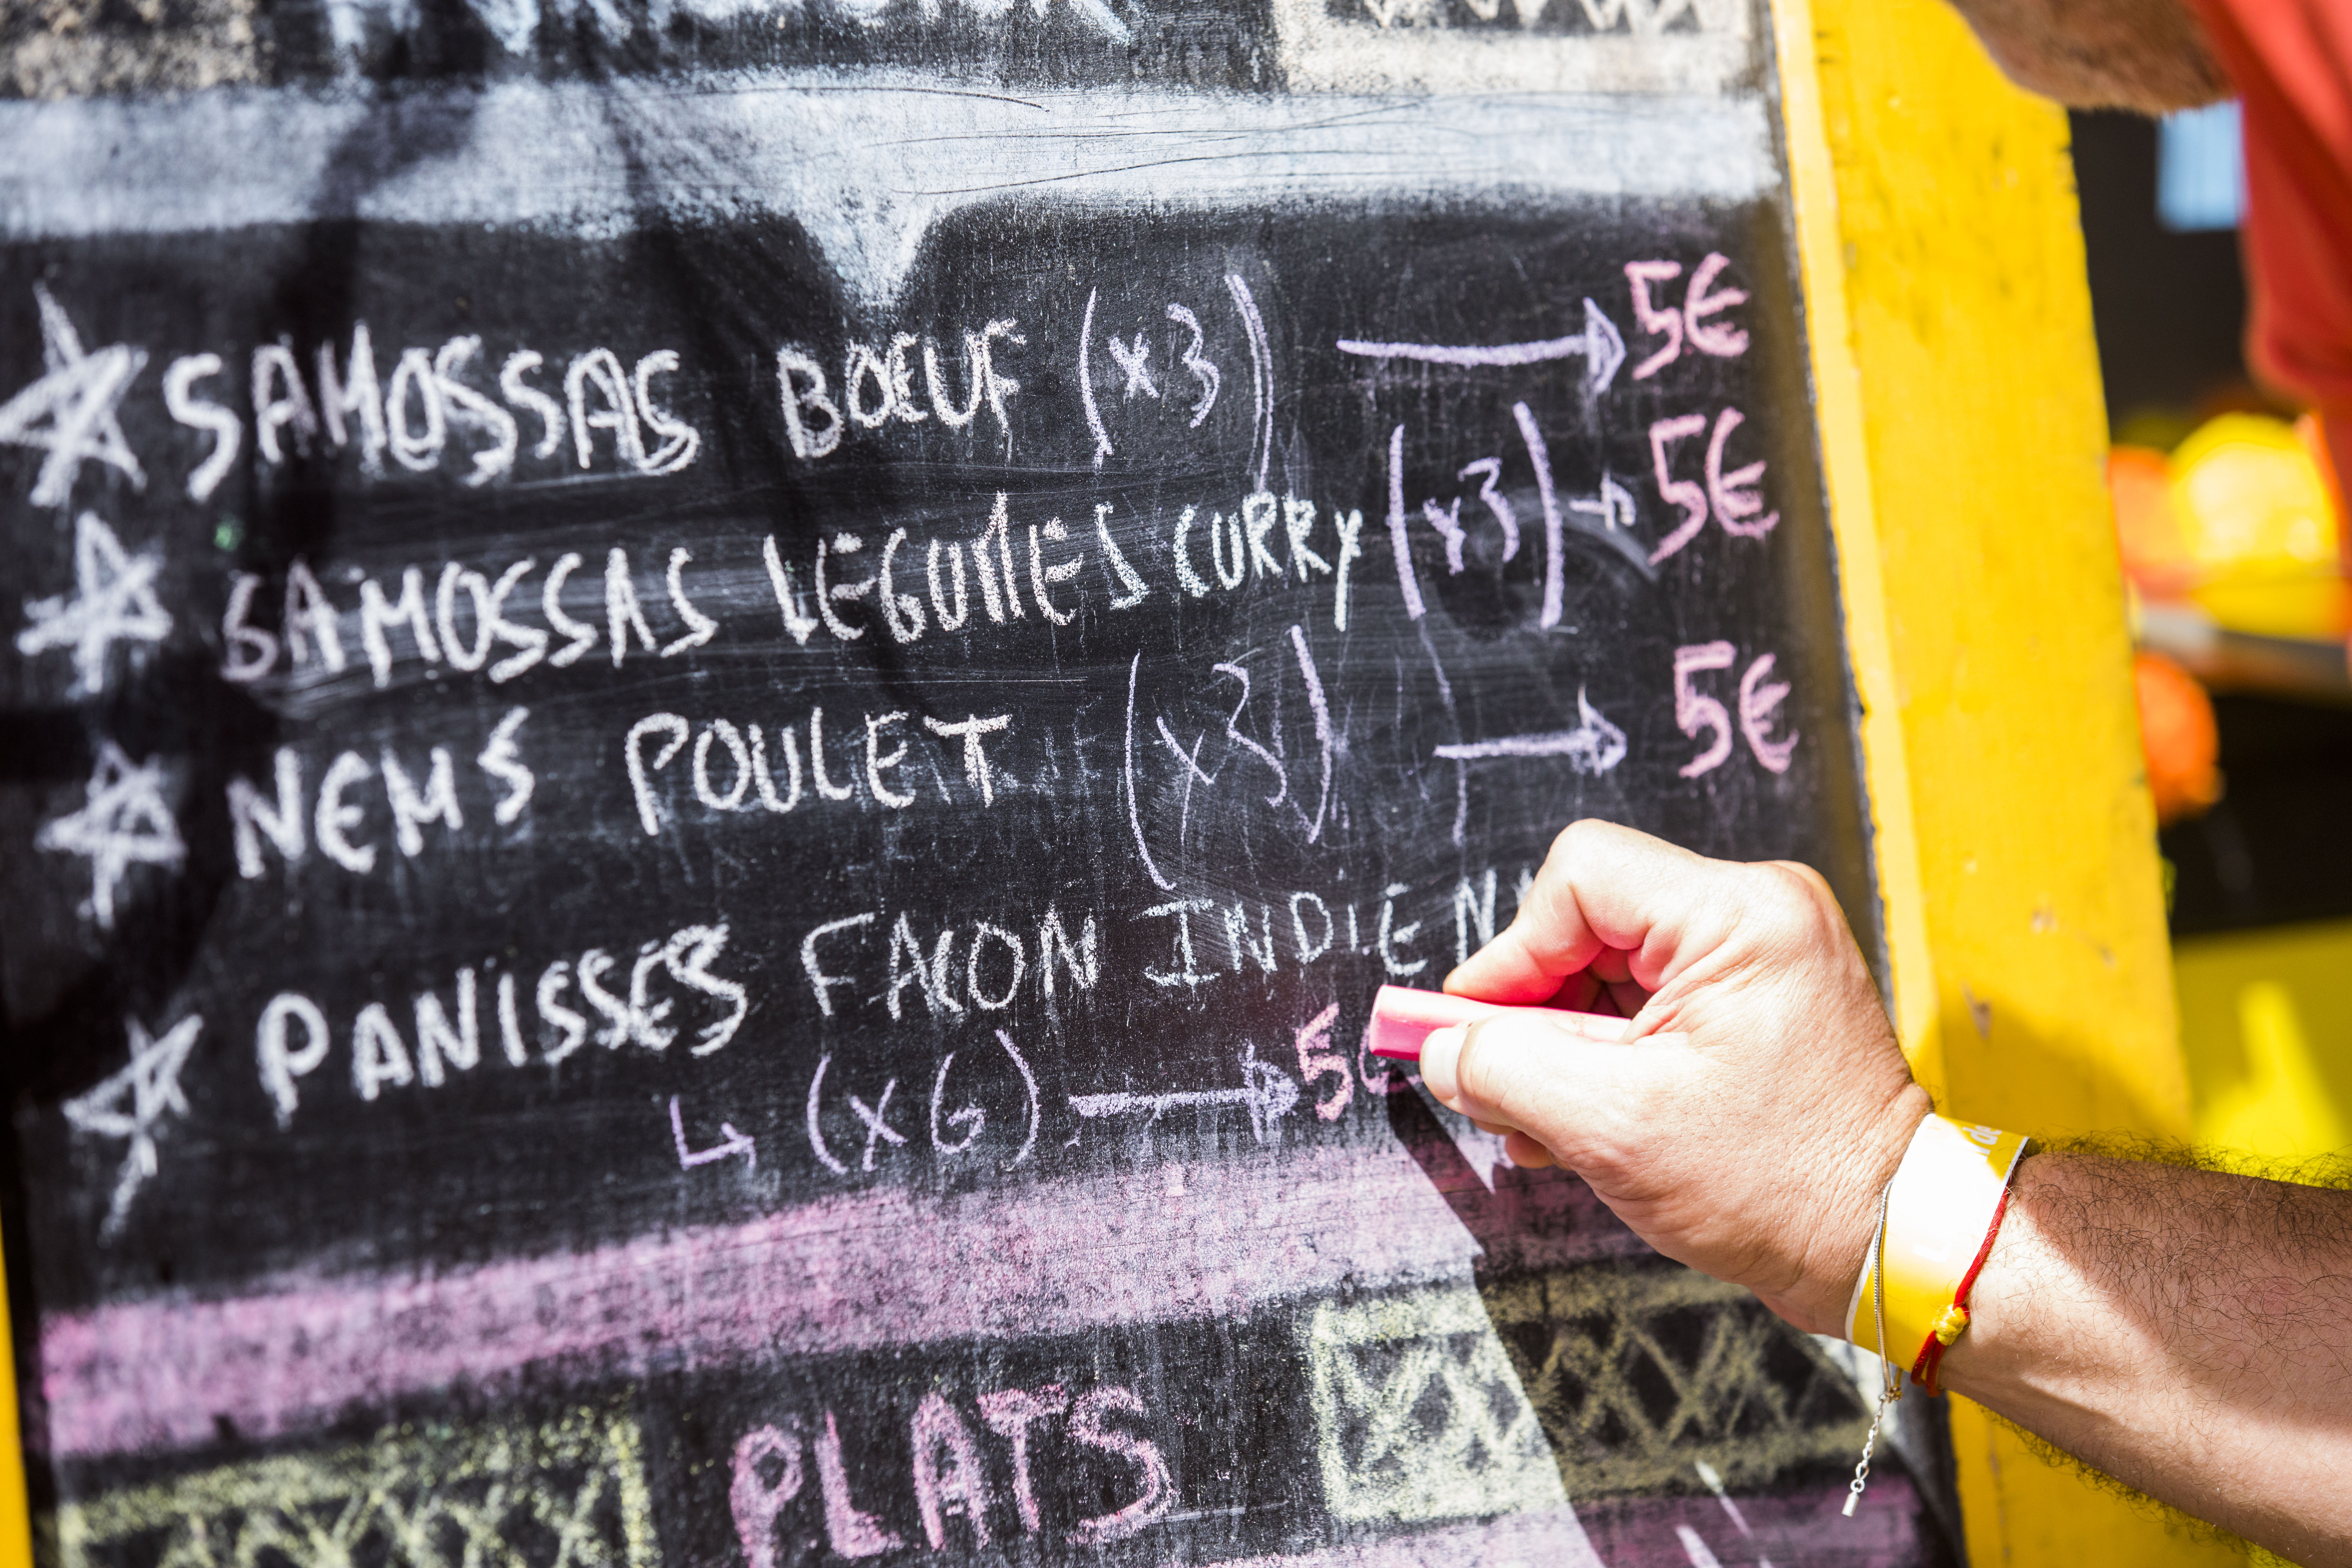 SAMOSSAS BŒUF (x3) → 5€
SAMOSSAS LEGUMES CURRY (x3) → 5€
NEMS POULET (x3) → 5€
PANISSES FACON INDIEN
↳ (x6) → 5€
PLATS